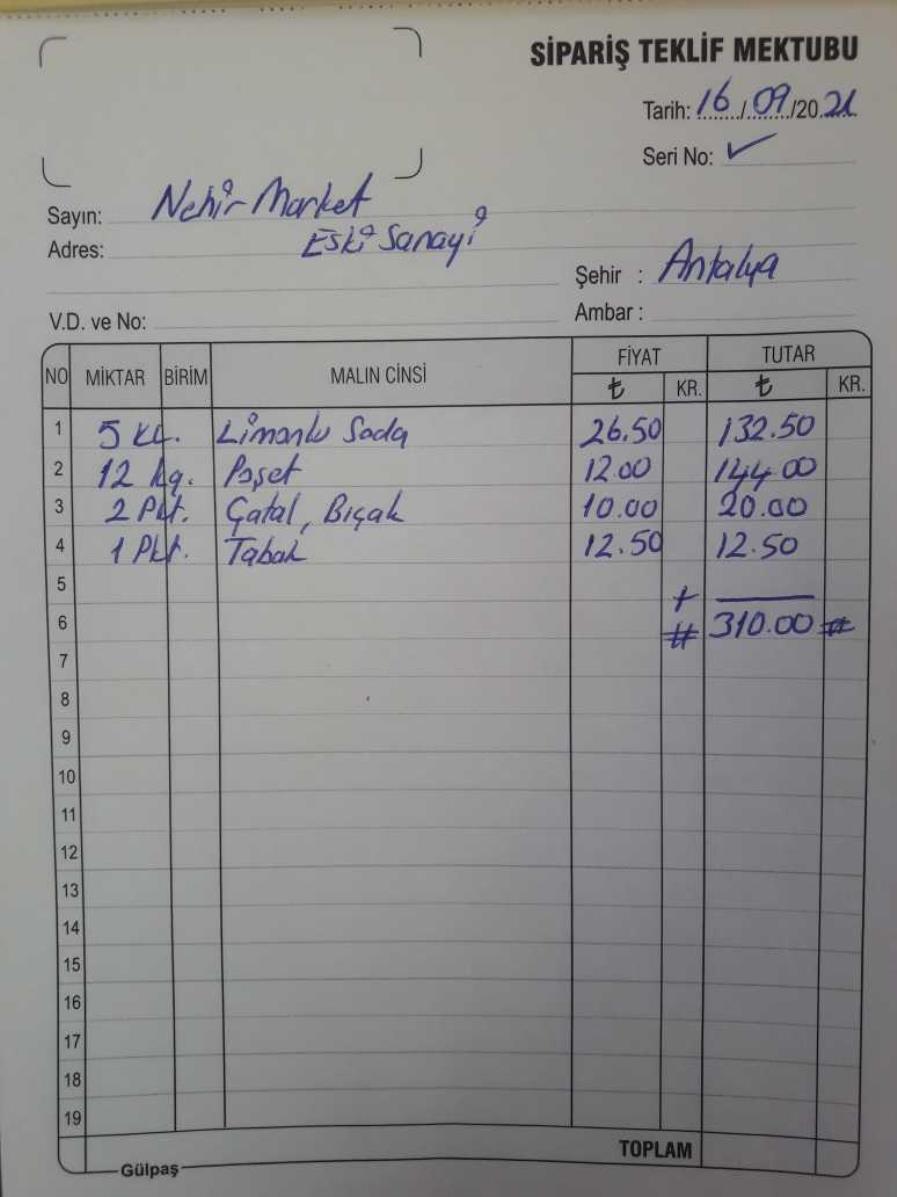 SİPARİŞ TEKLİF MEKTUBU
Tarih: 16/09/2021
Seri No: ✓
Sayın: Nehir Market
Adres: Eski Sanayi
Şehir : Antalya
V.D. ve No:
Ambar :
NO MİKTAR BİRİM MALIN CİNSİ FİYAT TUTAR
₺ KR. ₺ KR.
1 5 KL. Limonlu Soda 26.50 132.50
2 12 kg. Poşet 12.00 144.00
3 2 Pkt. Çatal, Bıçak 10.00 20.00
4 1 Pkt. Tabak 12.50 12.50
5 +
6 # 310.00 #
7
8
9
10
11
12
13
14
15
16
17
18
19
TOPLAM
Gülpaş